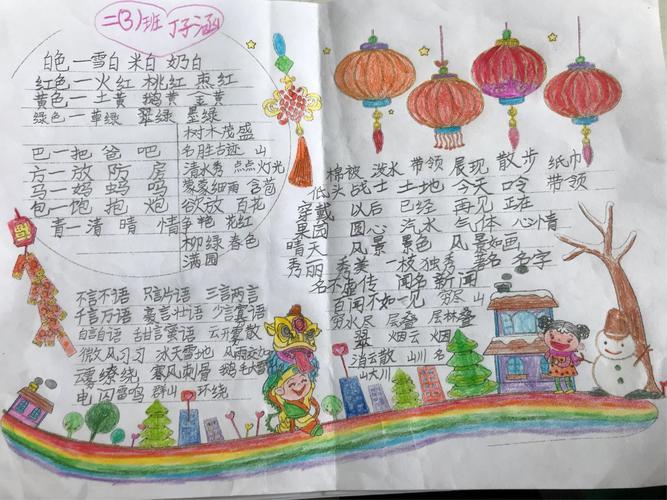 二(3)班 丁子涵
白色—雪白 米白 奶白
红色—火红 桃红 枣红
黄色—土黄 鹅黄 金黄
绿色—草绿 翠绿 墨绿
巴—把 爸 吧
方—放 防 房
马—妈 蚂 吗
包—饱 抱 炮
青—清 晴 情
树木茂盛
名胜古迹 山
清水秀 点点灯光
蒙蒙细雨 含苞
欲放 百花
争艳 花红
柳绿 春色
满园
不言不语 只言片语 三言两言
千言万语 豪言壮语 少言寡语
自言自语 甜言蜜语 云开雾散
微风习习 冰天雪地 风雨交加
云雾缭绕 寒风刺骨 鹅毛大雪
电闪雷鸣 群山 环绕
棉被 泼水 带领 展现 散步 纸巾
低头 战士 土地 今天 冷 带领
穿戴 以后 已经 再见 正在
果园 圆心 汽水 气体 心情
晴天 风景 景色 风景如画
秀丽 秀美 一枝独秀 著名 名字
名不虚传 闻名 新闻
百闻不如一见 穷尽 山
穷水尽 层叠 层林叠
翠 烟云 烟
消云散 山川 名
山大川